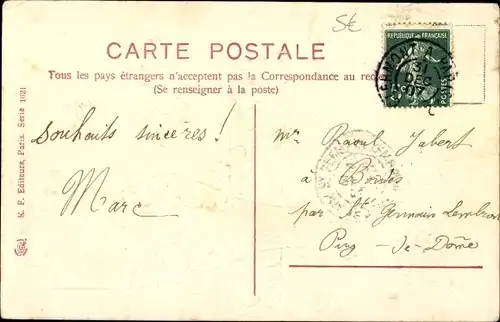 5€
CARTE POSTALE
Tous les pays étrangers n'acceptent pas la Correspondance au
(Se renseigner à la poste)
REPUBLIQUE FRANÇAISE
POSTES
31
DEC
07
K. F. Editeurs, Paris. Serie 1021
Souhaits sincères !
Marc
Mr Raoul Jabert
à Bordes
par St Germain Lembron
Puy-de-Dôme